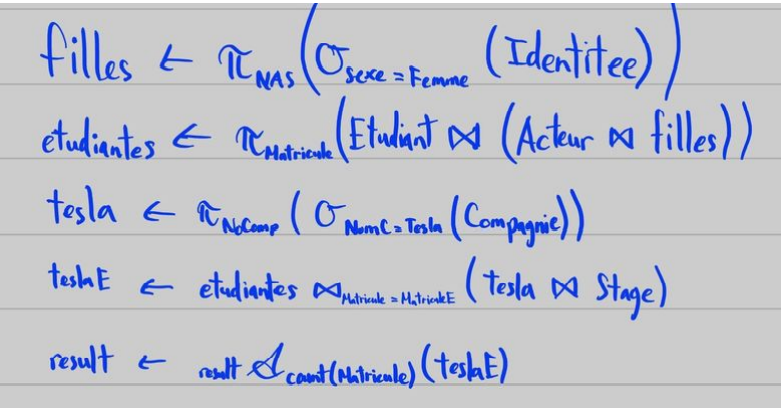 filles ← π NAS (σ sexe = Femme (Identitee))
etudiantes ← π Matricule (Etudiant ⋈ (Acteur ⋈ filles))
tesla ← π NoComp (σ NomC = Tesla (Compagnie))
teslaE ← etudiantes ⋈ Matricule = MatriculeE (Tesla ⋈ Stage)
result ← result 𝒢 count(Matricule) (teslaE)